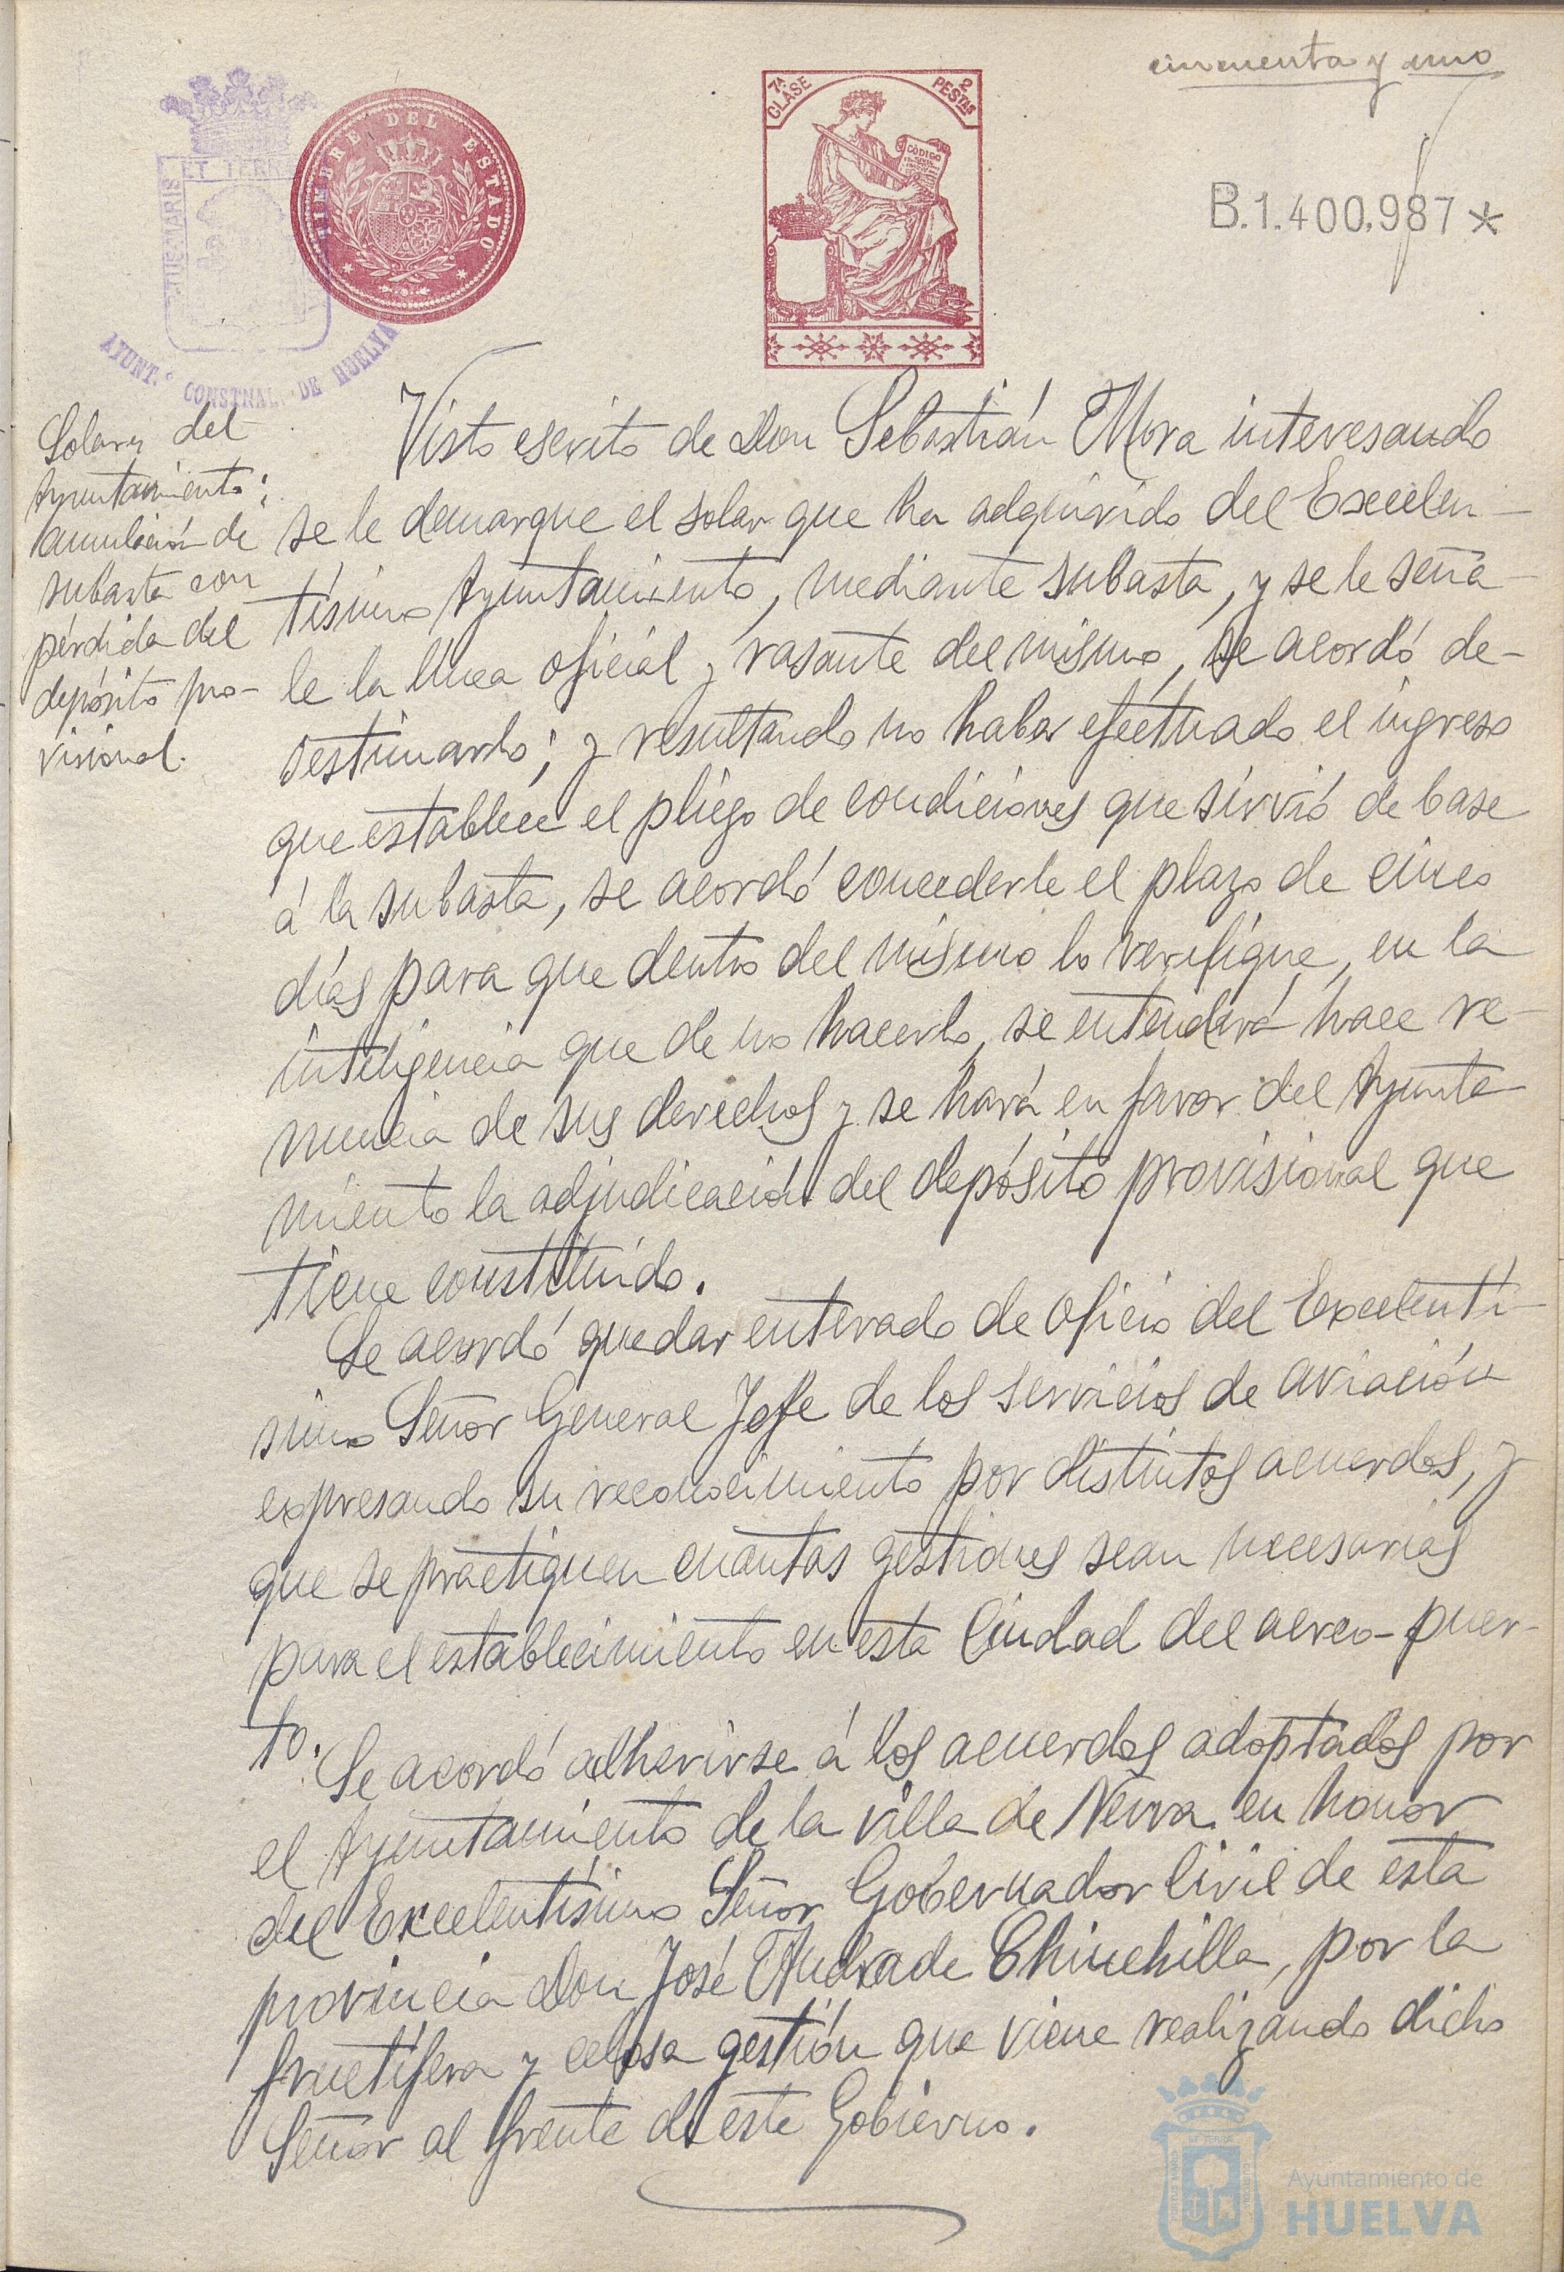 cincuenta y uno
TIMBRE DEL ESTADO
7ª CLASE
2 PESTAS
CÓDIGO
B.1.400.987*
ET TERR
AYUNT.º CONSTNAL. DE HUELVA
Solares del
Ayuntamiento;
anulación de
subasta con
pérdida del
depósito pro-
visional.
Visto escrito de Don Sebastián Mora interesando
se le demarque el solar que ha adquirido del Excelen-
tísimo Ayuntamiento, mediante subasta, y se le seña-
le la línea oficial y rasante del mismo, se acordó de-
sestimarlo; y resultando no haber efectuado el ingreso
que establece el pliego de condiciones que sirvió de base
á la subasta, se acordó concederle el plazo de cinco
días para que dentro del mismo lo verifique, en la
inteligencia que de no hacerlo, se entenderá hace re-
nuncia de sus derechos y se hará en favor del Ayunta-
miento la adjudicación del depósito provisional que
tiene constituído.
Se acordó quedar enterado de oficio del Excelentí-
simo Señor General Jefe de los servicios de aviación
expresando su reconocimiento por distintos acuerdos, y
que se practiquen cuantas gestiones sean necesarias
para el establecimiento en esta Ciudad del aereo-puer-
to.
Se acordó adherirse á los acuerdos adoptados por
el Ayuntamiento de la villa de Nerva en honor
del Excelentísimo Señor Gobernador Civil de esta
provincia Don José Andrade Chinchilla, por la
fructífera y celosa gestión que viene realizando dicho
Señor al frente de este Gobierno.
Ayuntamiento de
HUELVA